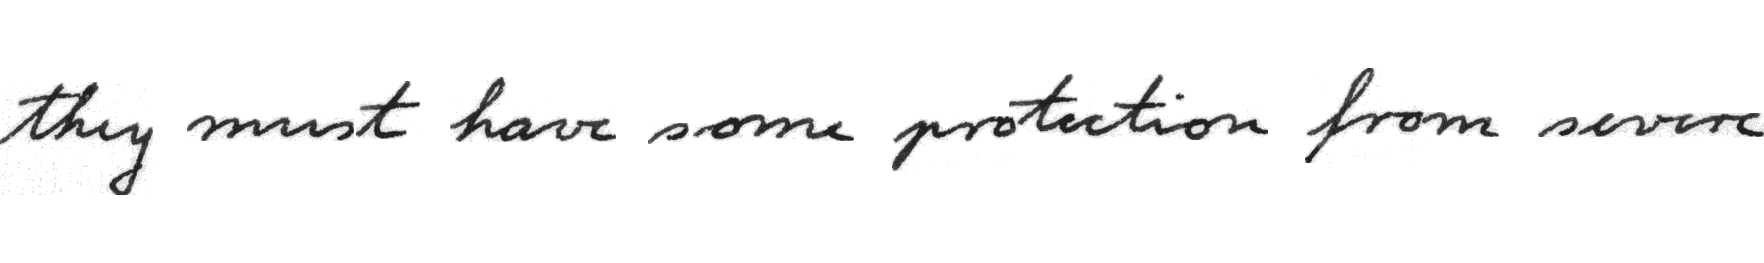 they must have some protection from severe